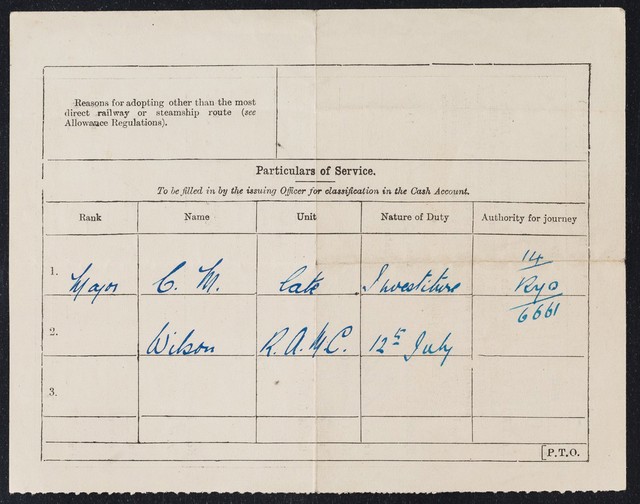 Reasons for adopting other than the most
direct railway or steamship route (see
Allowance Regulations).
Particulars of Service.
To be filled in by the issuing Officer for classification in the Cash Account.
Rank Name Unit Nature of Duty Authority for journey
1. Major C. M. late Investiture 14
Ryo
6661
2. Wilson R.A.M.C. 12th July
3.
P.T.O.